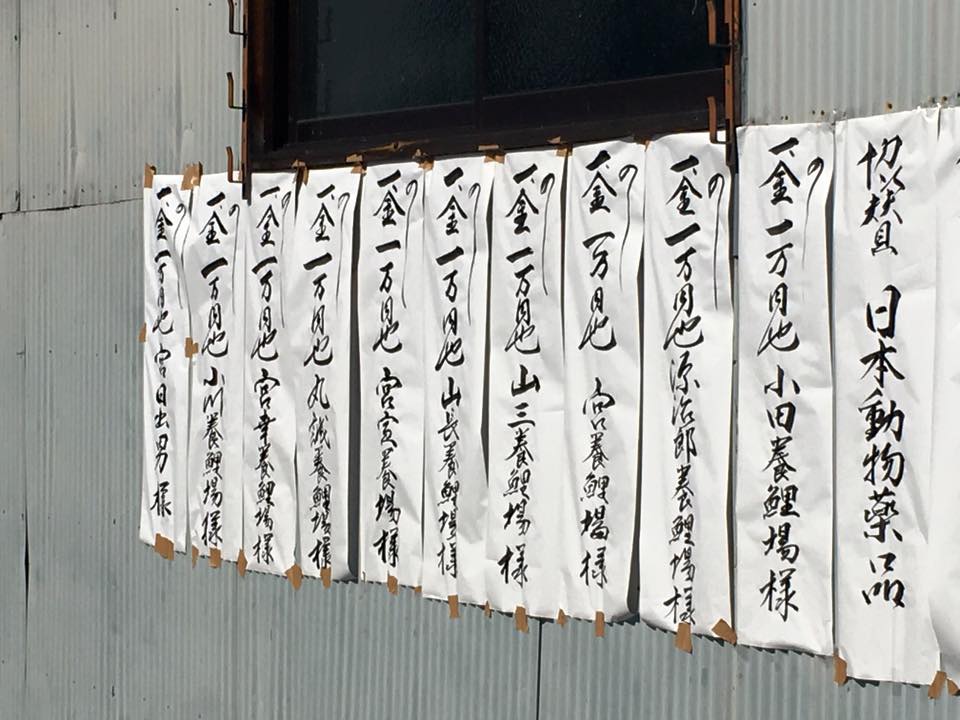 協賛 日本動物薬品
一金一万円也 小田養鯉場様
一金一万円也 源治郎養鯉場様
一金一万円也 宮養鯉場様
一金一万円也 山三養鯉場様
一金一万円也 山長養鯉場様
一金一万円也 宮寅養場様
一金一万円也 丸誠養鯉場様
一金一万円也 宮幸養鯉場様
一金一万円也 小川養鯉場様
一金一万円也 宮日出男様